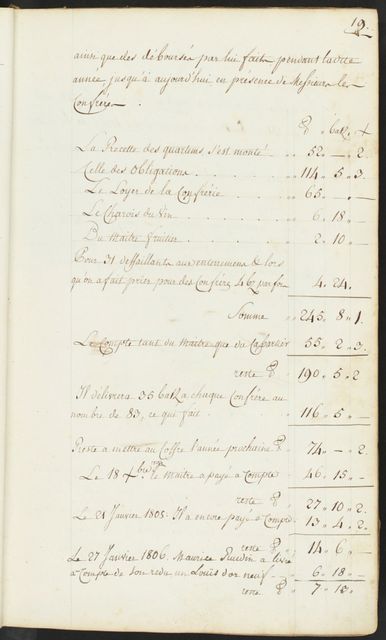 19.
ainsi que des déboursés par lui faits pendant ladite
année jusqu'à aujourd'hui en présence de Messieurs les
Confrères.
₶ batz +
La Recette des quartiers, s'est monté .. 52 „ — „ 2.
Celle des Obligations . . . . 114 „ 5 „ 3.
Le Loyer de la Confrérie . . . 65 „ — „ —
Le Charois du Vin . . . . 6 „ 18 „ —
Du Maître fruitier . . . . 2 „ 10 „ —
Pour 31 deffaillants aux enterremens & lors
qu'on a fait prier pour des Confrères 4 bz par fois 4 „ 24 „
Somme „ 245 „ 8 „ 1.
Le Compte tant du Maitre que du Cabartier 55 „ 2 „ 3.
reste ₶ 190 „ 5 „ 2
Il délivrera 35 batz à chaque Confrère au
nombre de 83, ce qui fait . . 116 „ 5 „ —
Reste à mettre au Coffre l'année prochaine ₶ 74 „ — „ 2.
Le 18 Xbre le Maître a payé à Compte 46 „ 15 „ —
reste ₶ 27 „ 10 „ 2.
Le 21 Janvier 1805. Il a encore payé à Compte 13 „ 4 „ 2.
reste ₶ 14 „ 6 „ —
Le 27 Janvier 1806 Maurice a livré
à Compte de son redu un Louis d'or neuf 6 „ 18 „ —
reste ₶ 7 „ 13 „